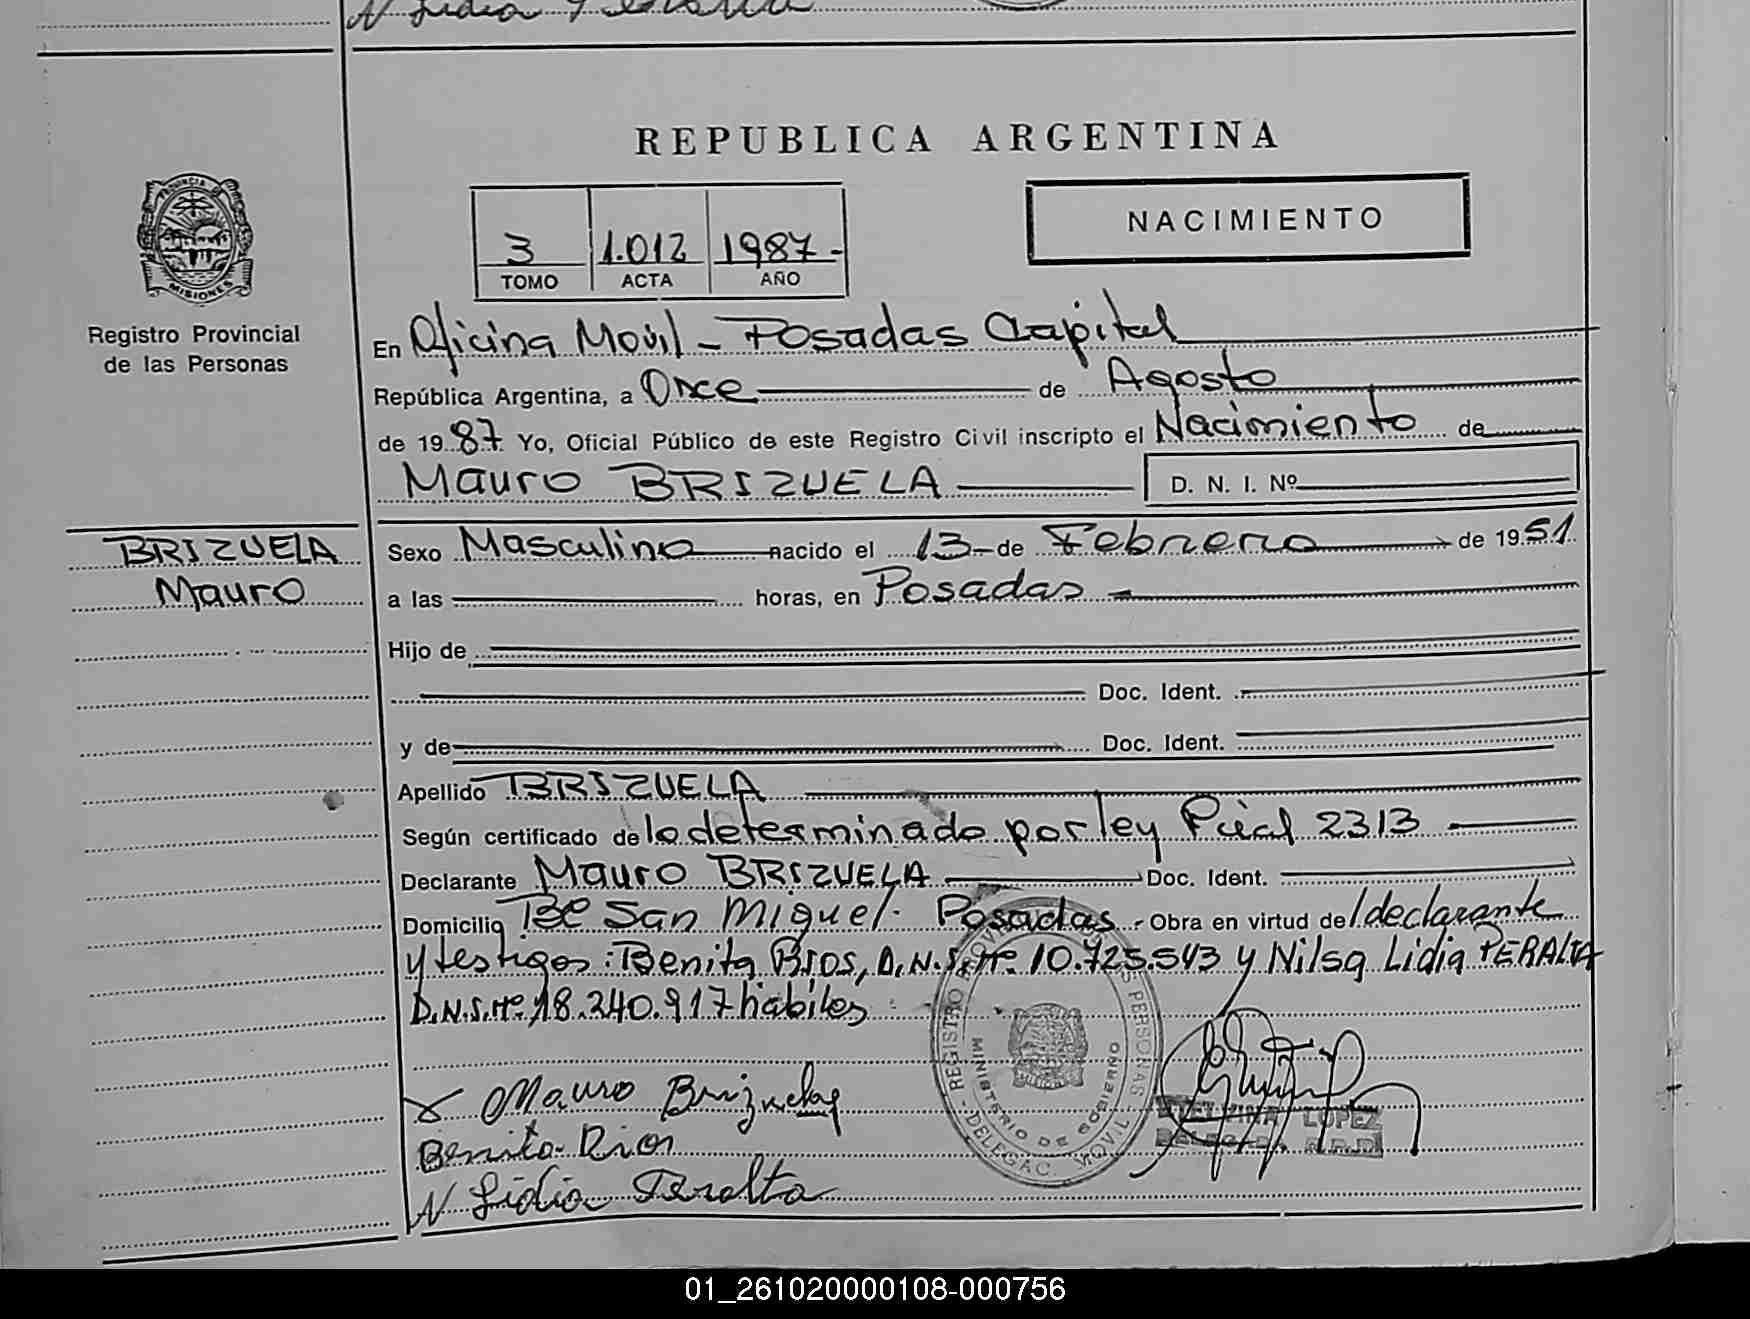 N Lidia Peralta
REPUBLICA ARGENTINA
PROVINCIA DE
MISIONES
Registro Provincial
de las Personas
3 1.012 1987-
TOMO ACTA AÑO
NACIMIENTO
En Oficina Movil - Posadas Capital
República Argentina, a Once de Agosto
de 19 87 Yo, Oficial Público de este Registro Civil inscripto el Nacimiento de
Mauro BRIZUELA D. N. I. Nº
BRIZUELA
Mauro
Sexo Masculino nacido el 13 de Febrero de 19 51
a las horas, en Posadas
Hijo de
Doc. Ident.
y de Doc. Ident.
Apellido BRIZUELA
Según certificado de lo determinado por ley Pcial 2313
Declarante Mauro BRIZUELA Doc. Ident.
Domicilio Bº San Miguel. Posadas - Obra en virtud de l declarante
y testigos: Benita Rios, D.N.I. Nº 10.725.543 y Nilsa Lidia PERALTA
D.N.I. Nº 18.240.917 hábiles
REGISTRO PERSONAS
MINISTERIO DE GOBIERNO
DELEGAC. MOVIL
x Mauro Brizuela
Benita Rios
N Lidia Peralta
LOPEZ
01_261020000108-000756